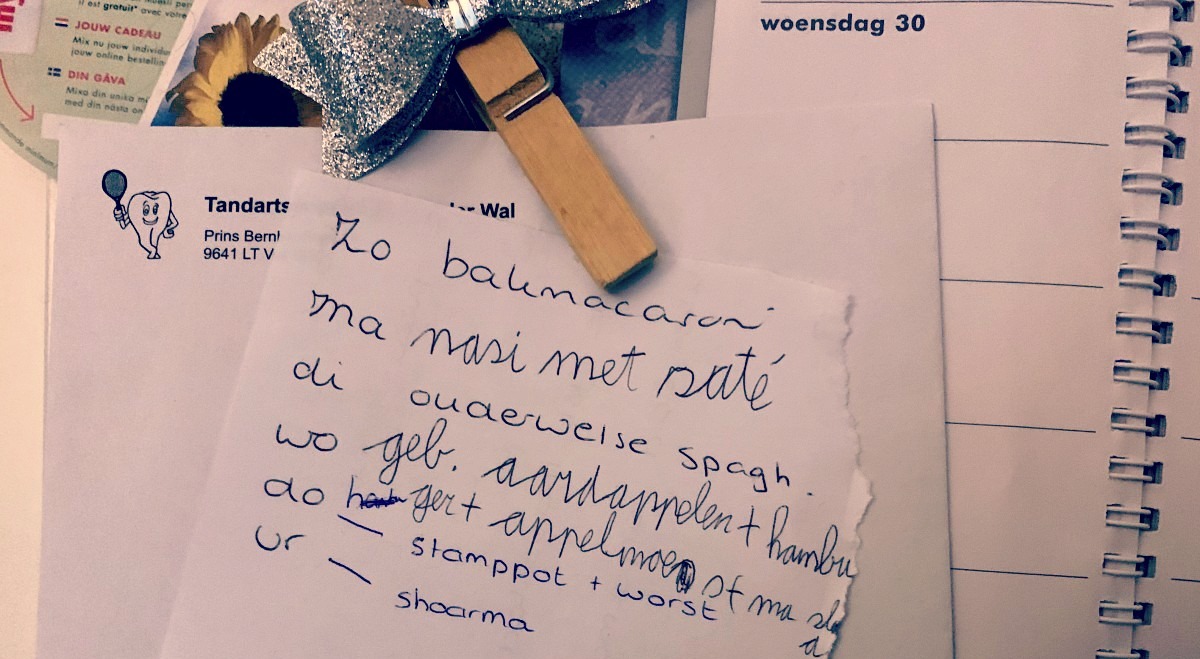 il est gratuit* avec votre
JOUW CADEAU
Mix nu jouw individu
jouw online bestellin
DIN GÅVA
Mixa din unika m
med din nästa on
woensdag 30
Tandarts
Wal
Prins Bern
9641 LT V
Zo bakmacaroni
ma nasi met saté
di ouderweise spagh.
wo geb. aardappelen + hambu
ger + appelmoes
do stamppot + worst
vr shoarma